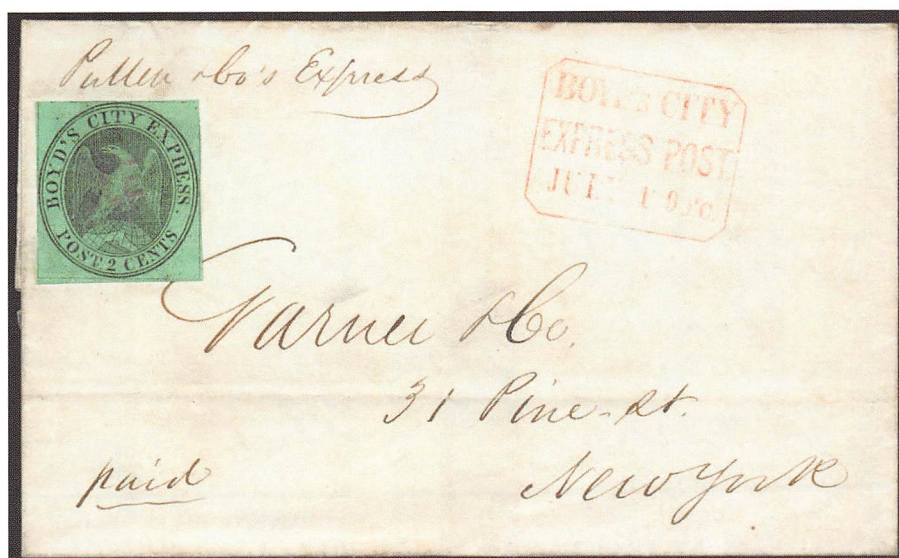 Pullen & Co's Express
BOYD'S CITY EXPRESS.
POST 2 CENTS
BOYD'S CITY
EXPRESS POST
JUL
Warner & Co.
31 Pine-st.
New York
paid